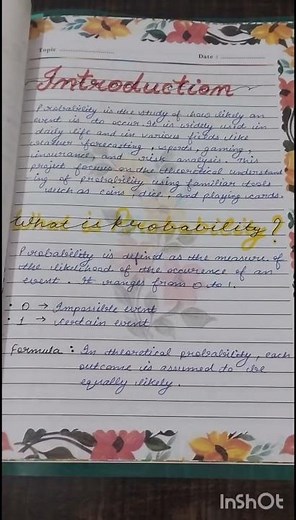 Topic
Date :
Introduction
Probability is the study of how likely an
event is to occur. It is widely used in
daily life and in various fields like
weather forecasting, sports, gaming,
insurance, and risk analysis. This
project focuses on the theoretical understand
ing of probability using familiar tools
such as coins, dice, and playing cards.
What is Probability ?
Probability is defined as the measure of
the likelihood of the occurence of an
event. It ranges from 0 to 1.
• 0 → Impossible event
• 1 → certain event
Formula : In theoretical probability, each
outcome is assumed to be
equally likely.
InShOt